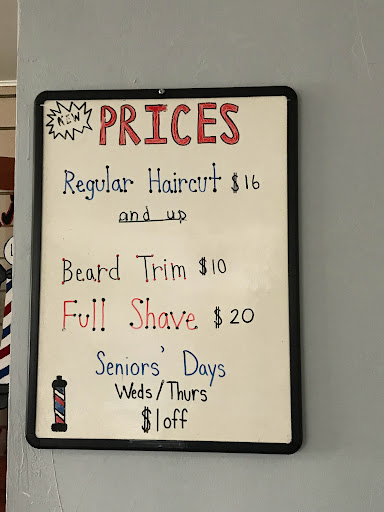 NEW
PRICES
Regular Haircut $16
and up
Beard Trim $10
Full Shave $20
Seniors' Days
Weds/Thurs
$1off